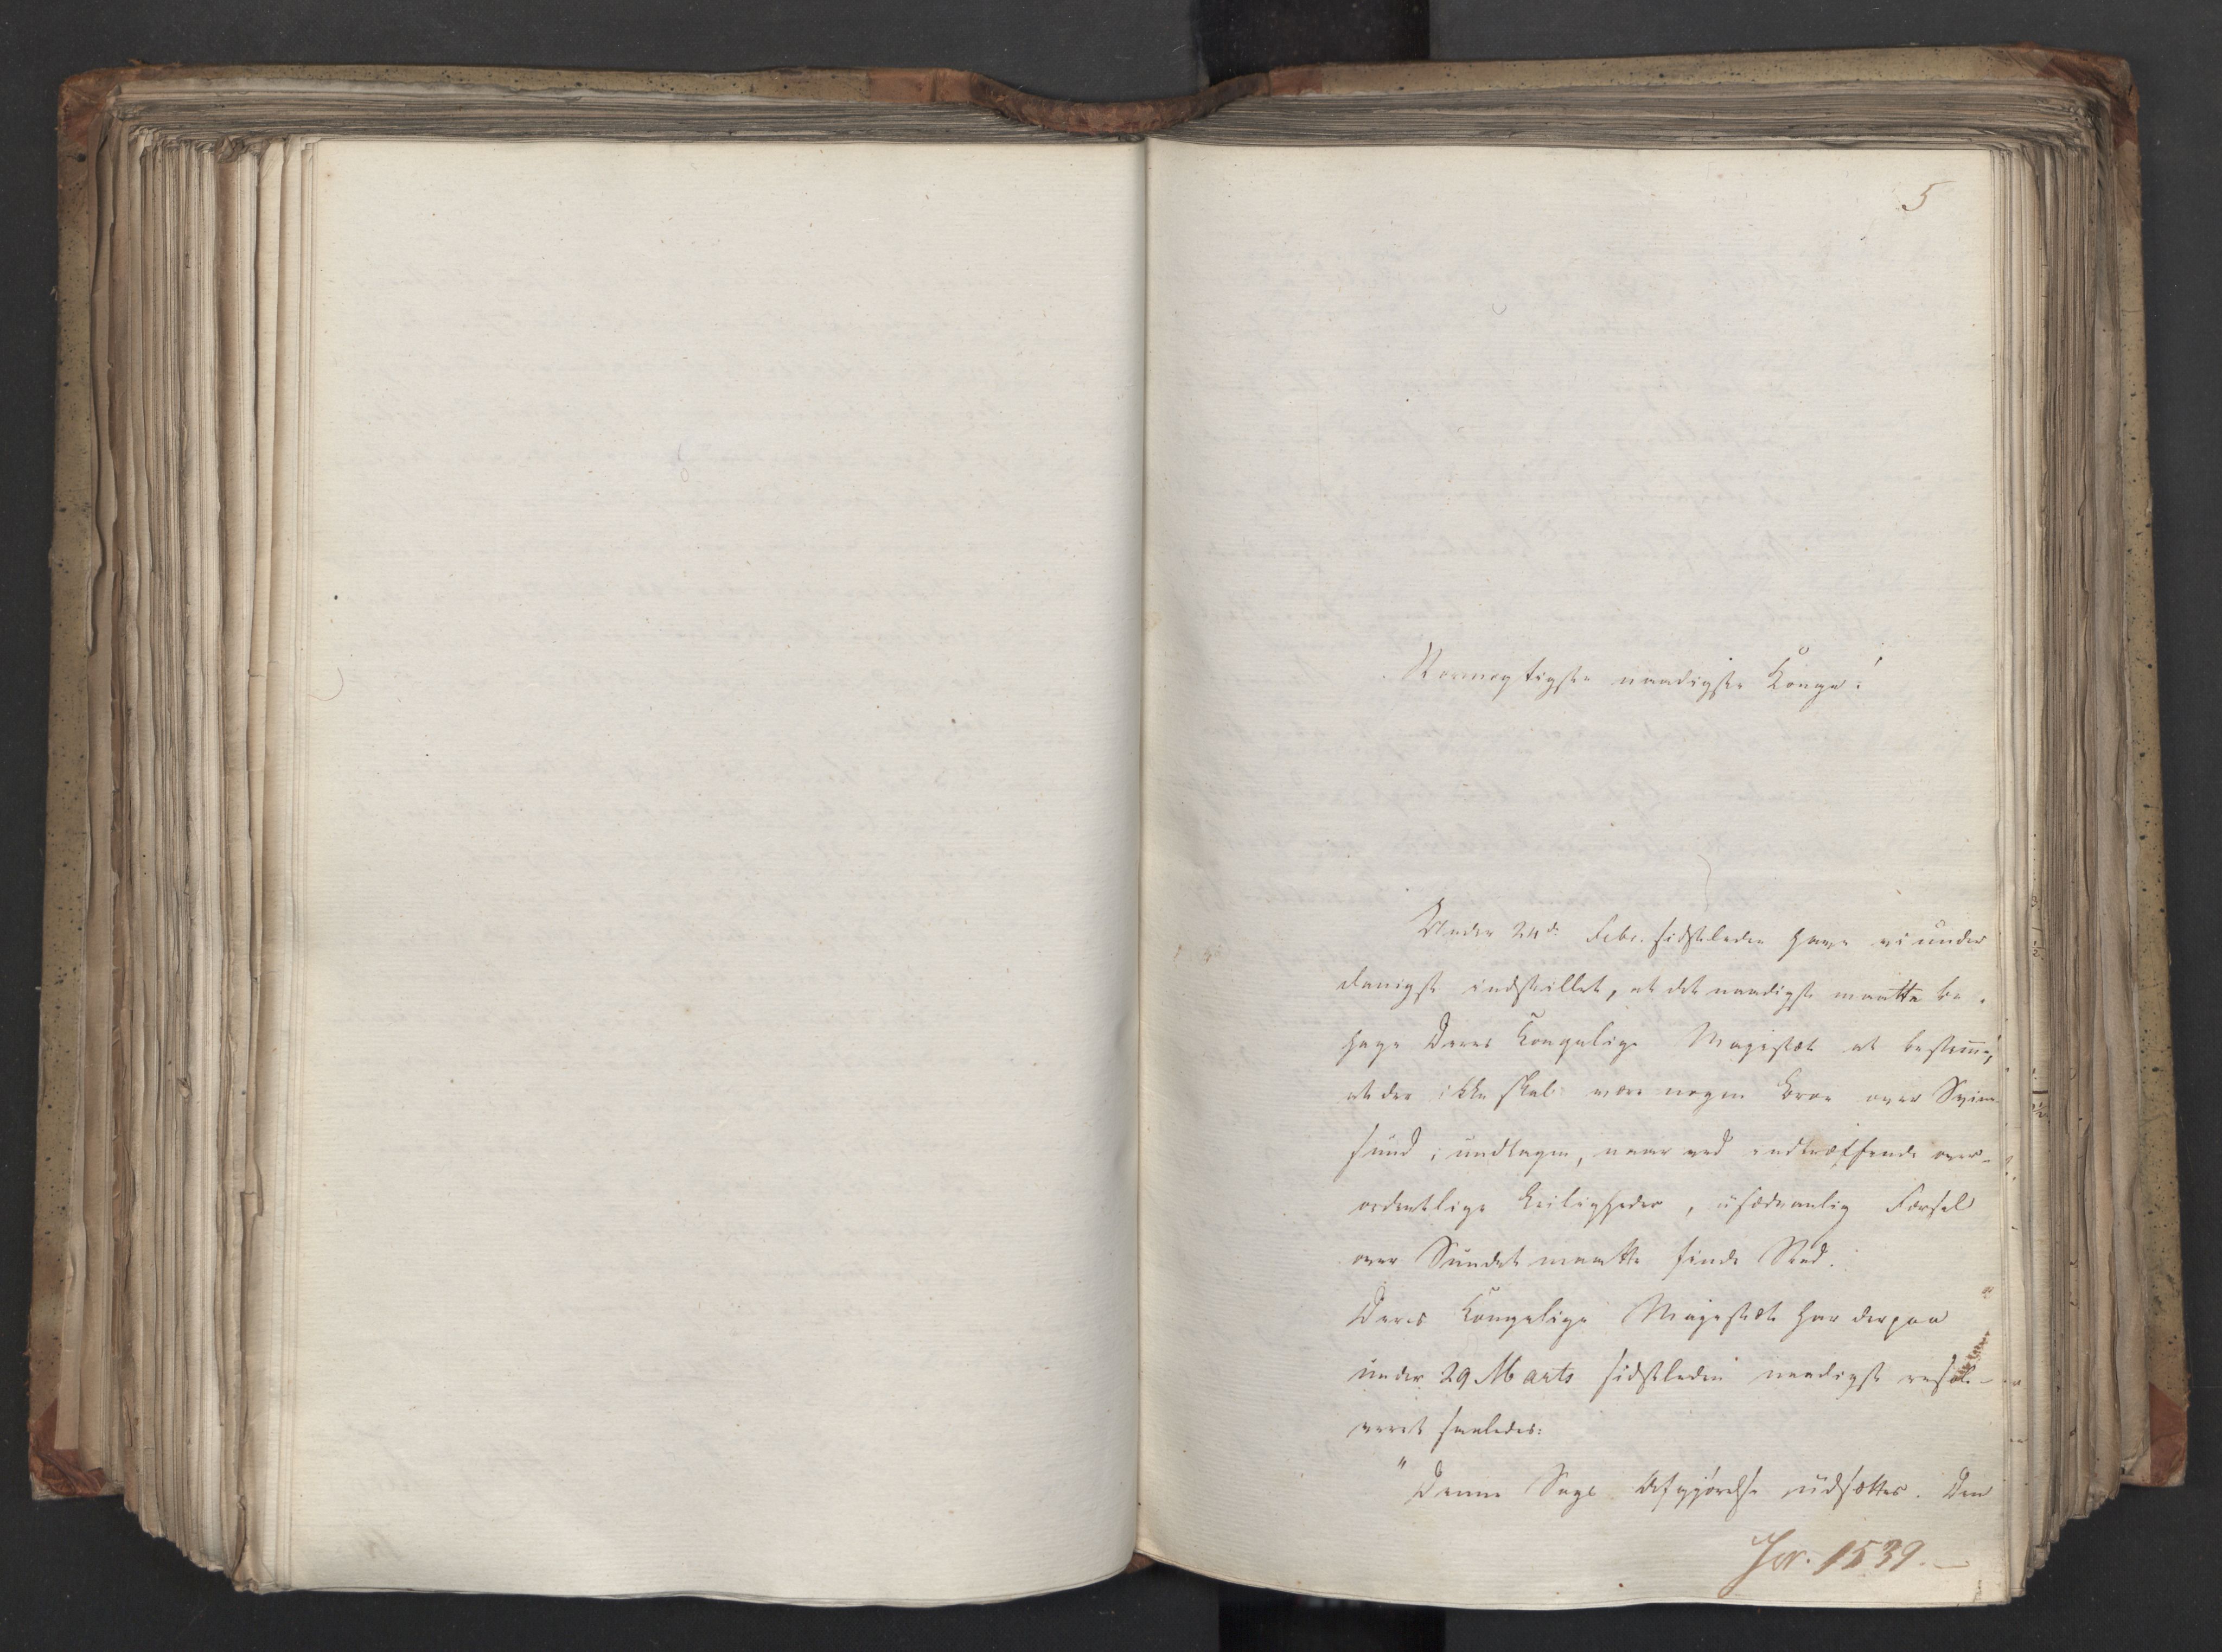 5
Stormægtigste naadigste Konge!
Under 24d. Febr. sidstleden have vi under
danigst indstillet, at det naadigst maatte be-
hage Deres Kongelige Majestæt at bestem̄e,
at der ikke skal være nogen Broe over Svine-
sund, undtagen, naar ved indtræffende over-
ordentlige Leiligheder, usædvanlig Færsel
over Sundet maatte finde Sted.
Deres Kongelige Majestæt har derpaa
under 29 Marts sidstleden naadigst resol-
veret saaledes:
"Denne Sags Afgjørelse udsættes. Den
Jor. 1539.-